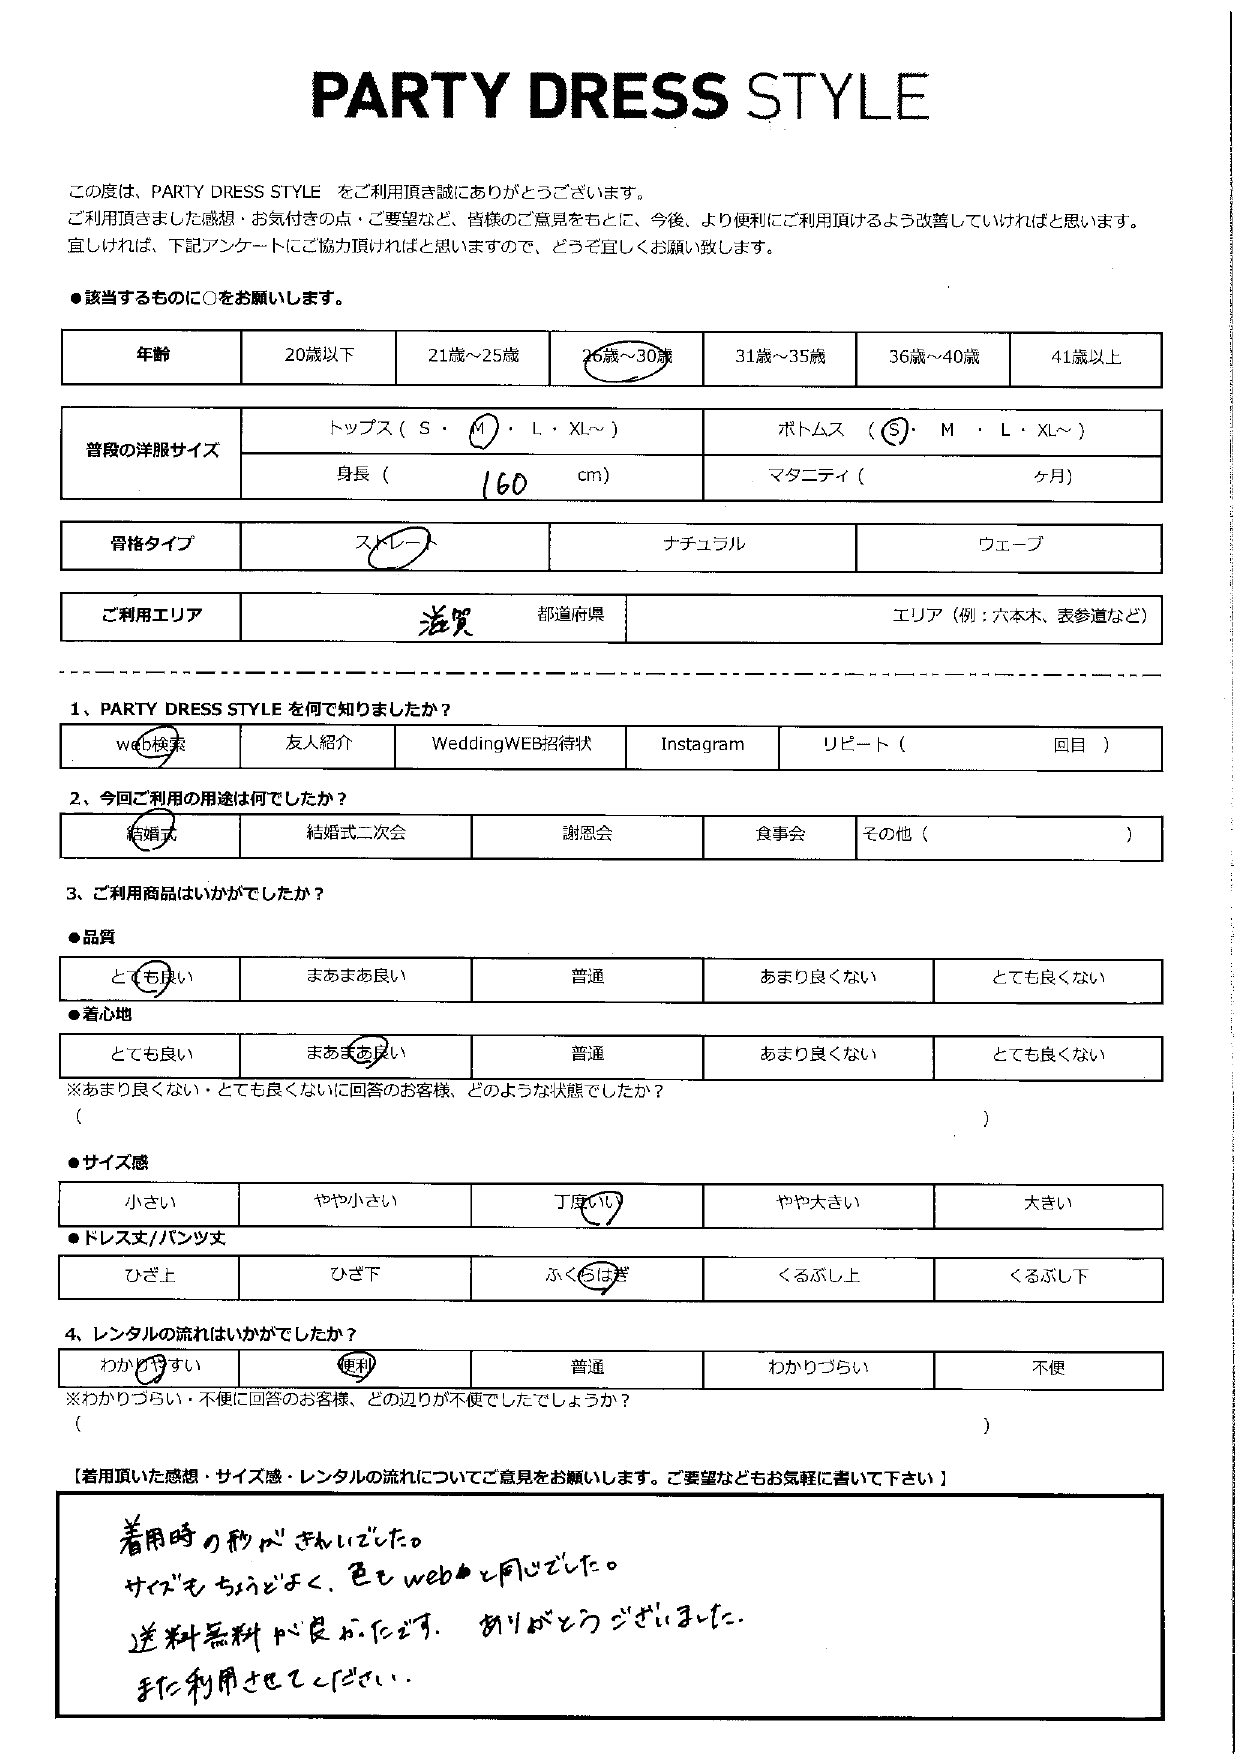 PARTY DRESS STYLE
この度は、PARTY DRESS STYLE をご利用頂き誠にありがとうございます。
ご利用頂きました感想・お気付きの点・ご要望など、皆様のご意見をもとに、今後、より便利にご利用頂けるよう改善していければと思います。
宜しければ、下記アンケートにご協力頂ければと思いますので、どうぞ宜しくお願い致します。
●該当するものに○をお願いします。
年齢 20歳以下 21歳～25歳 26歳～30歳 31歳～35歳 36歳～40歳 41歳以上
普段の洋服サイズ トップス ( S ・ M ・ L ・ XL～ ) ボトムス ( S ・ M ・ L ・ XL～ )
身長 ( 160 cm) マタニティ ( ヶ月)
骨格タイプ ストレート ナチュラル ウェーブ
ご利用エリア 滋賀 都道府県 エリア（例：六本木、表参道など）
1、PARTY DRESS STYLE を何で知りましたか？
web検索 友人紹介 WeddingWEB招待状 Instagram リピート ( 回目 )
2、今回ご利用の用途は何でしたか？
結婚式 結婚式二次会 謝恩会 食事会 その他 ( )
3、ご利用商品はいかがでしたか？
●品質
とても良い まあまあ良い 普通 あまり良くない とても良くない
●着心地
とても良い まあまあ良い 普通 あまり良くない とても良くない
※あまり良くない・とても良くないに回答のお客様、どのような状態でしたか？
( )
●サイズ感
小さい やや小さい 丁度いい やや大きい 大きい
●ドレス丈/パンツ丈
ひざ上 ひざ下 ふくらはぎ くるぶし上 くるぶし下
4、レンタルの流れはいかがでしたか？
わかりやすい 便利 普通 わかりづらい 不便
※わかりづらい・不便に回答のお客様、どの辺りが不便でしたでしょうか？
( )
【着用頂いた感想・サイズ感・レンタルの流れについてご意見をお願いします。ご要望などもお気軽に書いて下さい】
着用時の形がきれいでした。
サイズもちょうどよく、色もwebと同じでした。
送料無料が良かったです. ありがとうございました.
また利用させてください.